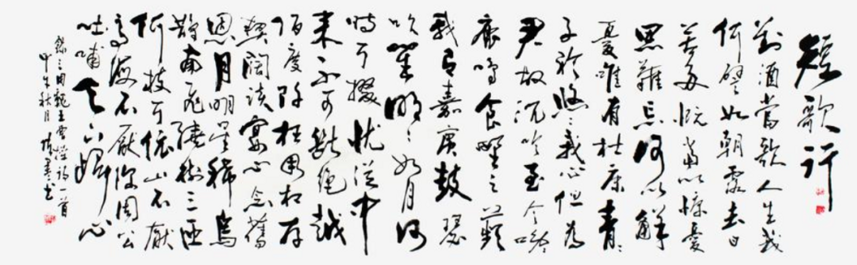 短歌行
對酒當歌人生幾
何譬如朝露去日
苦多慨當以慷憂
思難忘何以解
憂唯有杜康青〻
子衿悠〻我心但為
君故沉吟至今呦〻
鹿鳴食野之蘋
我有嘉賓鼓瑟
吹笙明〻如月何
時可掇憂從中
來不可斷絕越
陌度阡枉用相存
契闊談宴心念舊
恩月明星稀烏
鵲南飛繞樹三匝
何枝可依山不厭
高海不厭深周公
吐哺天下歸心
錄三國魏王曹操詩一首
甲午秋月 書